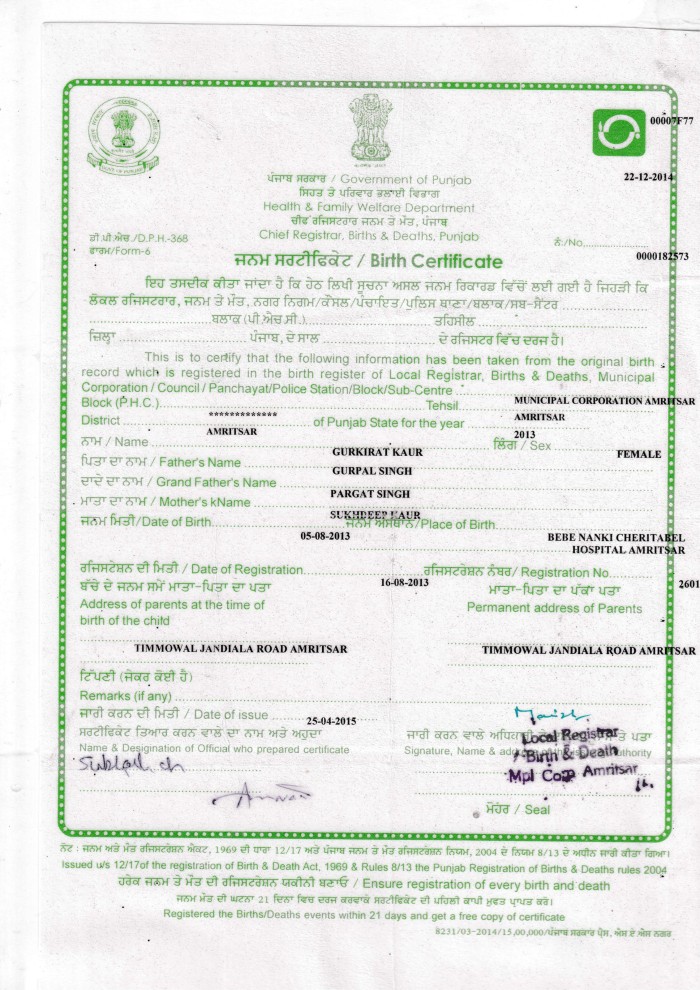 00007F77
22-12-2014
ਪੰਜਾਬ ਸਰਕਾਰ / Government of Punjab
ਸਿਹਤ ਤੇ ਪਰਿਵਾਰ ਭਲਾਈ ਵਿਭਾਗ
Health & Family Welfare Department
ਚੀਫ ਰਜਿਸਟਰਾਰ ਜਨਮ ਤੇ ਮੌਤ, ਪੰਜਾਬ
Chief Registrar, Births & Deaths, Punjab
ਡੀ.ਪੀ.ਐਚ./D.P.H.-368
ਫਾਰਮ/Form-6
ਨੰ:/No.
0000182573
ਜਨਮ ਸਰਟੀਫਿਕੇਟ / Birth Certificate
ਇਹ ਤਸਦੀਕ ਕੀਤਾ ਜਾਂਦਾ ਹੈ ਕਿ ਹੇਠ ਲਿਖੀ ਸੂਚਨਾ ਅਸਲ ਜਨਮ ਰਿਕਾਰਡ ਵਿੱਚੋਂ ਲਈ ਗਈ ਹੈ ਜਿਹੜੀ ਕਿ
ਲੋਕਲ ਰਜਿਸਟਰਾਰ, ਜਨਮ ਤੇ ਮੌਤ, ਨਗਰ ਨਿਗਮ/ਕੌਂਸਲ/ਪੰਚਾਇਤ/ਪੁਲਿਸ ਥਾਣਾ/ਬਲਾਕ/ਸਬ-ਸੈਂਟਰ
ਬਲਾਕ (ਪੀ.ਐਚ.ਸੀ.) ਤਹਿਸੀਲ
ਜ਼ਿਲ੍ਹਾ ਪੰਜਾਬ, ਦੇ ਸਾਲ ਦੇ ਰਜਿਸਟਰ ਵਿੱਚ ਦਰਜ ਹੈ।
This is to certify that the following information has been taken from the original birth
record which is registered in the birth register of Local Registrar, Births & Deaths, Municipal
Corporation / Council / Panchayat/Police Station/Block/Sub-Centre
Block (P.H.C.) Tehsil MUNICIPAL CORPORATION AMRITSAR
District ************* of Punjab State for the year AMRITSAR
AMRITSAR 2013
ਨਾਮ / Name ਲਿੰਗ / Sex
GURKIRAT KAUR FEMALE
ਪਿਤਾ ਦਾ ਨਾਮ / Father's Name
GURPAL SINGH
ਦਾਦੇ ਦਾ ਨਾਮ / Grand Father's Name
PARGAT SINGH
ਮਾਤਾ ਦਾ ਨਾਮ / Mother's kName
SUKHDEEP KAUR
ਜਨਮ ਮਿਤੀ/Date of Birth ਜਨਮ ਅਸਥਾਨ/Place of Birth
05-08-2013 BEBE NANKI CHERITABEL
HOSPITAL AMRITSAR
ਰਜਿਸਟੇਸ਼ਨ ਦੀ ਮਿਤੀ / Date of Registration ਰਜਿਸਟਰੇਸ਼ਨ ਨੰਬਰ/ Registration No.
16-08-2013 2601
ਬੱਚੇ ਦੇ ਜਨਮ ਸਮੇਂ ਮਾਤਾ-ਪਿਤਾ ਦਾ ਪਤਾ ਮਾਤਾ-ਪਿਤਾ ਦਾ ਪੱਕਾ ਪਤਾ
Address of parents at the time of Permanent address of Parents
birth of the child
TIMMOWAL JANDIALA ROAD AMRITSAR TIMMOWAL JANDIALA ROAD AMRITSAR
ਟਿੱਪਣੀ (ਜੇਕਰ ਕੋਈ ਹੈ)
Remarks (if any)
ਜਾਰੀ ਕਰਨ ਦੀ ਮਿਤੀ / Date of issue
25-04-2015
ਸਰਟੀਫਿਕੇਟ ਤਿਆਰ ਕਰਨ ਵਾਲੇ ਦਾ ਨਾਮ ਅਤੇ ਅਹੁਦਾ
Name & Designation of Official who prepared certificate
ਜਾਰੀ ਕਰਨ ਵਾਲੇ ਪਤਾ
Signature, Name & Authority
Local Registrar
Birth & Death
Mpl Corp Amritsar
ਮੋਹਰ / Seal
ਨੋਟ : ਜਨਮ ਅਤੇ ਮੌਤ ਰਜਿਸਟਰੇਸ਼ਨ ਐਕਟ, 1969 ਦੀ ਧਾਰਾ 12/17 ਅਤੇ ਪੰਜਾਬ ਜਨਮ ਤੇ ਮੌਤ ਰਜਿਸਟਰੇਸ਼ਨ ਨਿਯਮ, 2004 ਦੇ ਨਿਯਮ 8/13 ਦੇ ਅਧੀਨ ਜਾਰੀ ਕੀਤਾ ਗਿਆ।
Issued u/s 12/17of the registration of Birth & Death Act, 1969 & Rules 8/13 the Punjab Registration of Births & Deaths rules 2004
ਹਰੇਕ ਜਨਮ ਤੇ ਮੌਤ ਦੀ ਰਜਿਸਟਰੇਸ਼ਨ ਯਕੀਨੀ ਬਣਾਓ / Ensure registration of every birth and death
ਜਨਮ ਮੌਤ ਦੀ ਘਟਨਾ 21 ਦਿਨਾਂ ਵਿਚ ਦਰਜ ਕਰਵਾਕੇ ਸਰਟੀਫਿਕੇਟ ਦੀ ਪਹਿਲੀ ਕਾਪੀ ਮੁਫਤ ਪ੍ਰਾਪਤ ਕਰੋ।
Registered the Births/Deaths events within 21 days and get a free copy of certificate
8231/03-2014/15,00,000/ਪੰਜਾਬ ਸਰਕਾਰ ਪ੍ਰੈਸ, ਐਸ.ਏ.ਐਸ ਨਗਰ